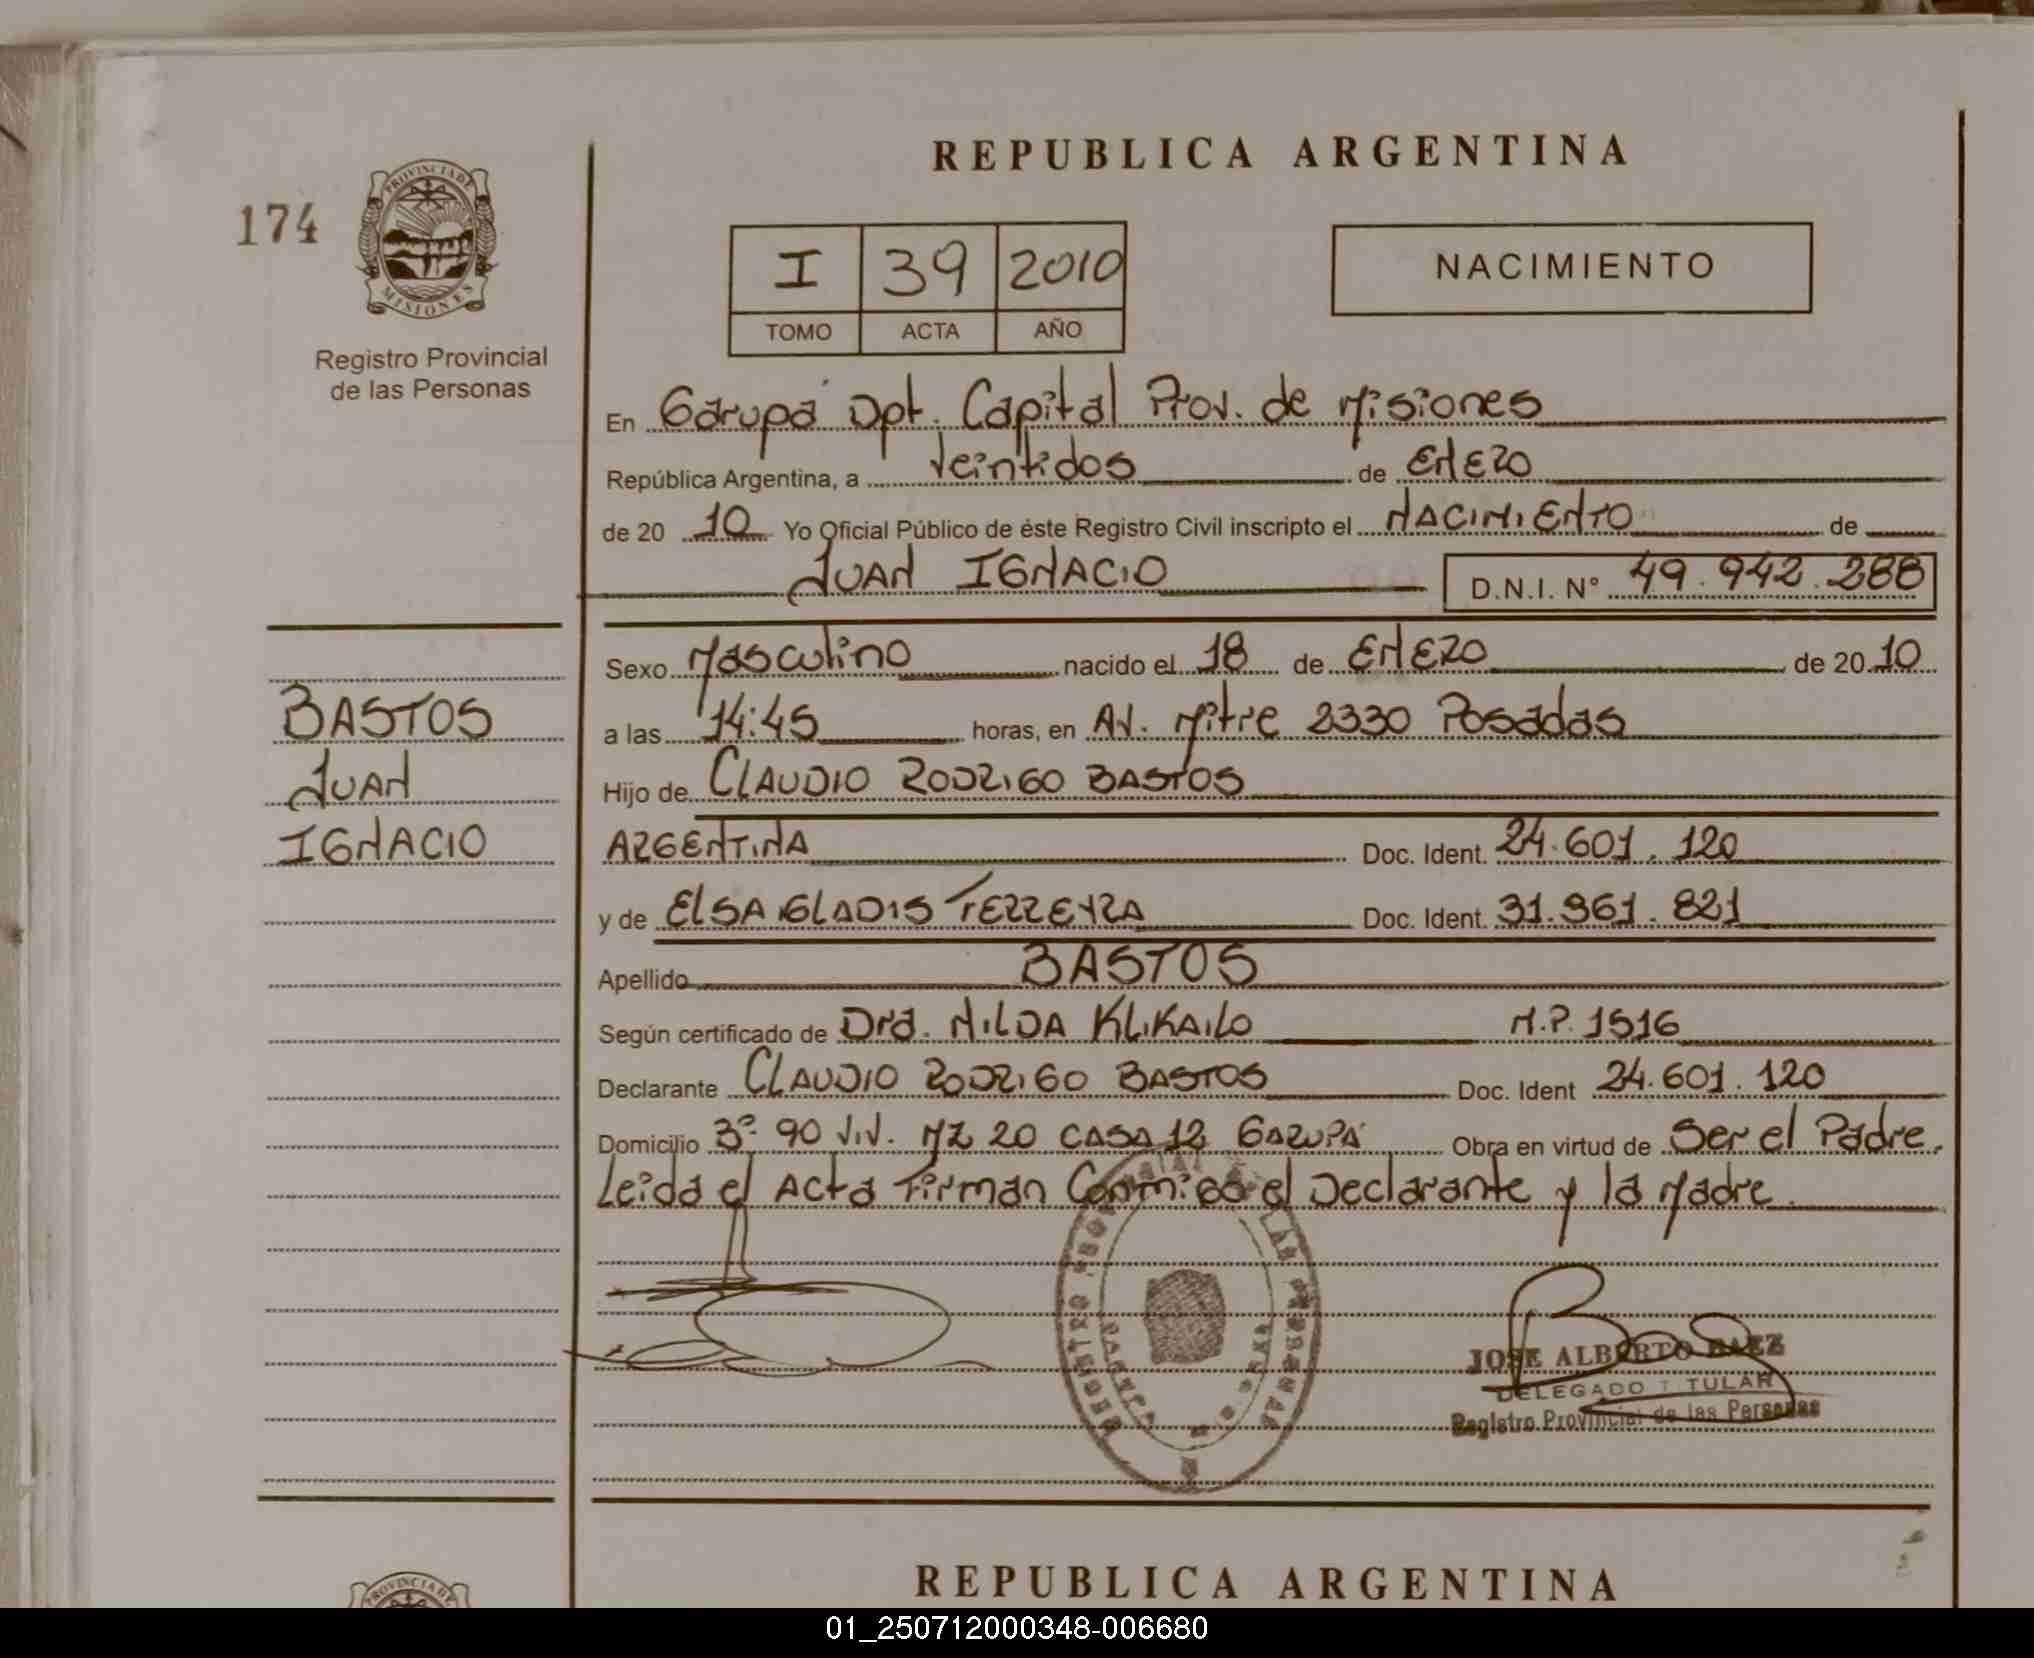 REPUBLICA ARGENTINA
174
PROVINCIA DE
MISIONES
Registro Provincial
de las Personas
I 39 2010
TOMO ACTA AÑO
NACIMIENTO
En Garupá Dpt. Capital Prov. de Misiones
República Argentina, a Veintidos de ENERO
de 20 10 Yo Oficial Público de éste Registro Civil inscripto el NACIMIENTO de
JUAN IGNACIO D.N.I. N° 49.942.288
Sexo Masculino nacido el 18 de ENERO de 20 10
a las 14:45 horas, en Av. Mitre 2330 Posadas
Hijo de CLAUDIO RODRIGO BASTOS
ARGENTINA Doc. Ident. 24.601.120
y de ELSA GLADIS FERREYRA Doc. Ident. 31.961.821
Apellido BASTOS
Según certificado de Dra. NILDA KLIKAILO M.P. 1516
Declarante CLAUDIO RODRIGO BASTOS Doc. Ident 24.601.120
Domicilio 3º 90 Viv. MZ 20 CASA 12 GARUPÁ Obra en virtud de Ser el Padre.
Leida el Acta Firman Conmigo el Declarante y la Madre.
BASTOS
JUAN
IGNACIO
REGISTRO PROVINCIAL DE LAS PERSONAS
JOSE ALBERTO BAEZ
DELEGADO TITULAR
Registro Provincial de las Personas
REPUBLICA ARGENTINA
PROVINCIA DE
01_250712000348-006680